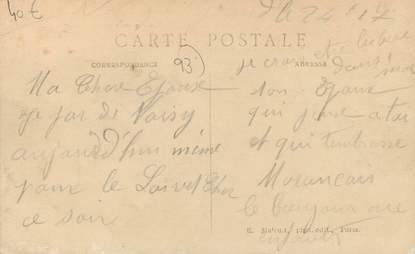 40 €
CARTE POSTALE
CORRESPONDANCE
93
ADRESSE
Ma Chere Epouse
je par de Noisy
aujourd'hui même
pour le Loir et Cher
ce soir
je
ton Epoux
qui pense a toi
et qui t'embrasse
le bonjour aux
enfants
phot. édit., Paris.